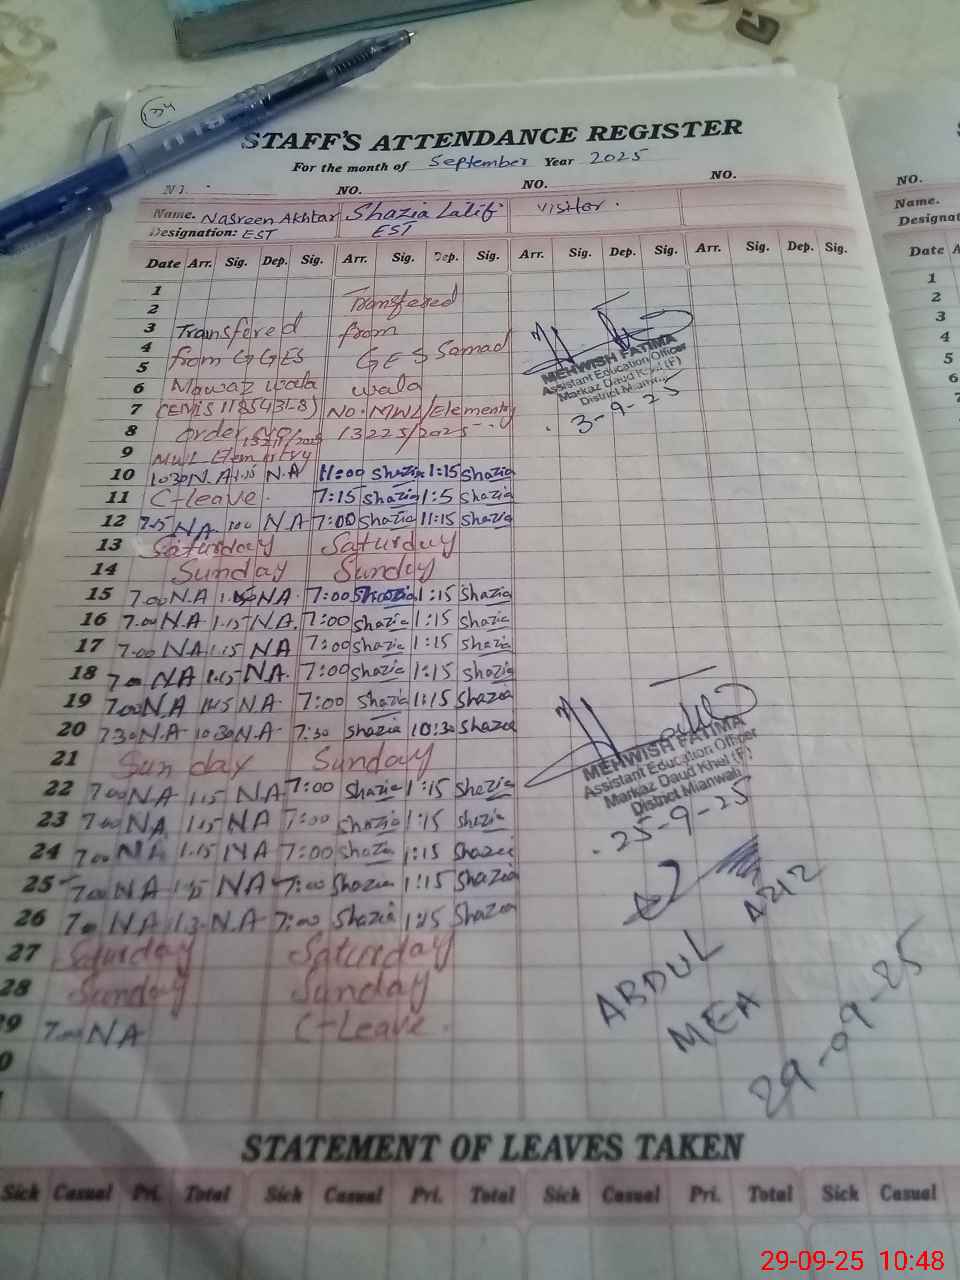 134
STAFF'S ATTENDANCE REGISTER
For the month of September Year 2025
NO. NO. NO. NO.
Name. Nasreen Akhtar Shazia Latif Visitor.
Designation: EST EST
Date Arr. Sig. Dep. Sig. Arr. Sig. Dep. Sig. Arr. Sig. Dep. Sig. Arr. Sig. Dep. Sig.
1
2 Transfered
3 Transfered from
4 from GGES GES Samad
5
6 Mawaz wala wala
7 No. MWL/Elementry
8 order 13225/2025
9 MWL
10 1030 N.A 1.15 N.A 11:00 Shazia 1:15 Shazia
11 C-leave. 7:15 Shazia 1:5 Shazia
12 NA. NA 7:00 Shazia 11:15 Shazia
13 Saturday Saturday
14 Sunday Sunday
15 7.00 N.A NA. 7:00 Shazia 1:15 Shazia
16 7.00 NA 1.15 NA. 7:00 Shazia 1:15 Shazia
17 7.00 NA 1.15 NA 7:00 Shazia 1:15 Shazia
18 NA 1.15 NA. 7:00 Shazia 1:15 Shazia
19 7.00 N.A N.A 7:00 Shazia 1:15 Shazia
20 730 N.A 10 30 N.A 7:30 Shazia 10:30 Shazia
21 Sunday Sunday
22 7.00 NA 1.15 NA 7:00 Shazia 1:15 Shazia
23 7.00 NA 1.15 NA 7:00 Shazia 1:15 Shazia
24 7.00 NA 1.15 NA 7:00 Shazia 1:15 Shazia
25 7.00 NA NA 7:00 Shazia 1:15 Shazia
26 NA N.A 7:00 Shazia Shazia
27 Saturday Saturday
28 Sunday Sunday
29 7.00 NA C-Leave.
MEHWISH FATIMA
Assistant Education Officer
Markaz Daud Khel (F)
District Mianwali
3-9-25
MEHWISH FATIMA
Assistant Education Officer
Markaz Daud Khel (F)
District Mianwali
25-9-25
ABDUL AZIZ
MEA
29-09-25
STATEMENT OF LEAVES TAKEN
Sick Casual Pri. Total Sick Casual Pri. Total Sick Casual Pri. Total Sick Casual
NO.
Name.
Designat
Date A
1
2
3
4
5
6
7
8
29-09-25 10:48